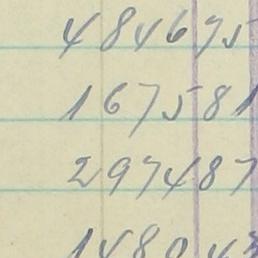 484675
167581
297487
148043